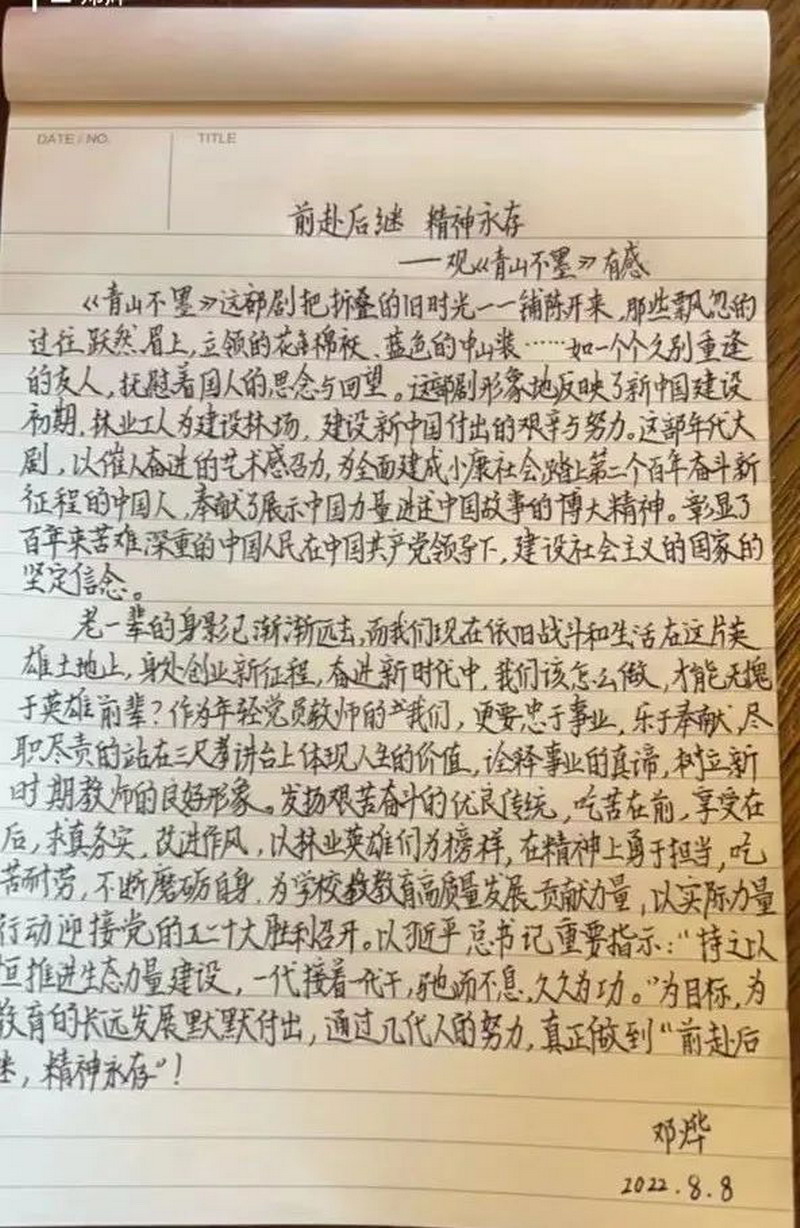 DATE / NO.
TITLE
前赴后继 精神永存
——观《青山不墨》有感
《青山不墨》这部剧把折叠的旧时光一一铺陈开来,那些飘忽的
过往跃然眉上,立领的花棉袄、蓝色的中山装……如一个个久别重逢
的友人,抚慰着国人的思念与回望。这部剧形象地反映了新中国建设
初期,林业工人为建设林场,建设新中国付出的艰辛与努力。这部年代大
剧,以催人奋进的艺术感召力,为全面建成小康社会,踏上第二个百年奋斗新
征程的中国人,奉献了展示中国力量讲述中国故事的博大精神。彰显了
百年来苦难深重的中国人民在中国共产党领导下,建设社会主义的国家的
坚定信念。
老一辈的身影已渐渐远去,而我们现在依旧战斗和生活在这片英
雄土地上,身处创业新征程,奋进新时代中,我们该怎么做,才能无愧
于英雄前辈?作为年轻党员教师的我们,更要忠于事业,乐于奉献,尽
职尽责的站在三尺讲台上体现人生的价值,诠释事业的真谛,树立新
时期教师的良好形象。发扬艰苦奋斗的优良传统,吃苦在前,享受在
后,求真务实,改进作风,以林业英雄们为榜样,在精神上勇于担当,吃
苦耐劳,不断磨砺自身,为学校教育高质量发展贡献力量,以实际力量
行动迎接党的二十大胜利召开。以习近平总书记重要指示:“持之以
恒推进生态力量建设,一代接着一代干,驰而不息,久久为功。”为目标,为
教育的长远发展默默付出,通过几代人的努力,真正做到“前赴后
继,精神永存”!
邓烨
2022.8.8